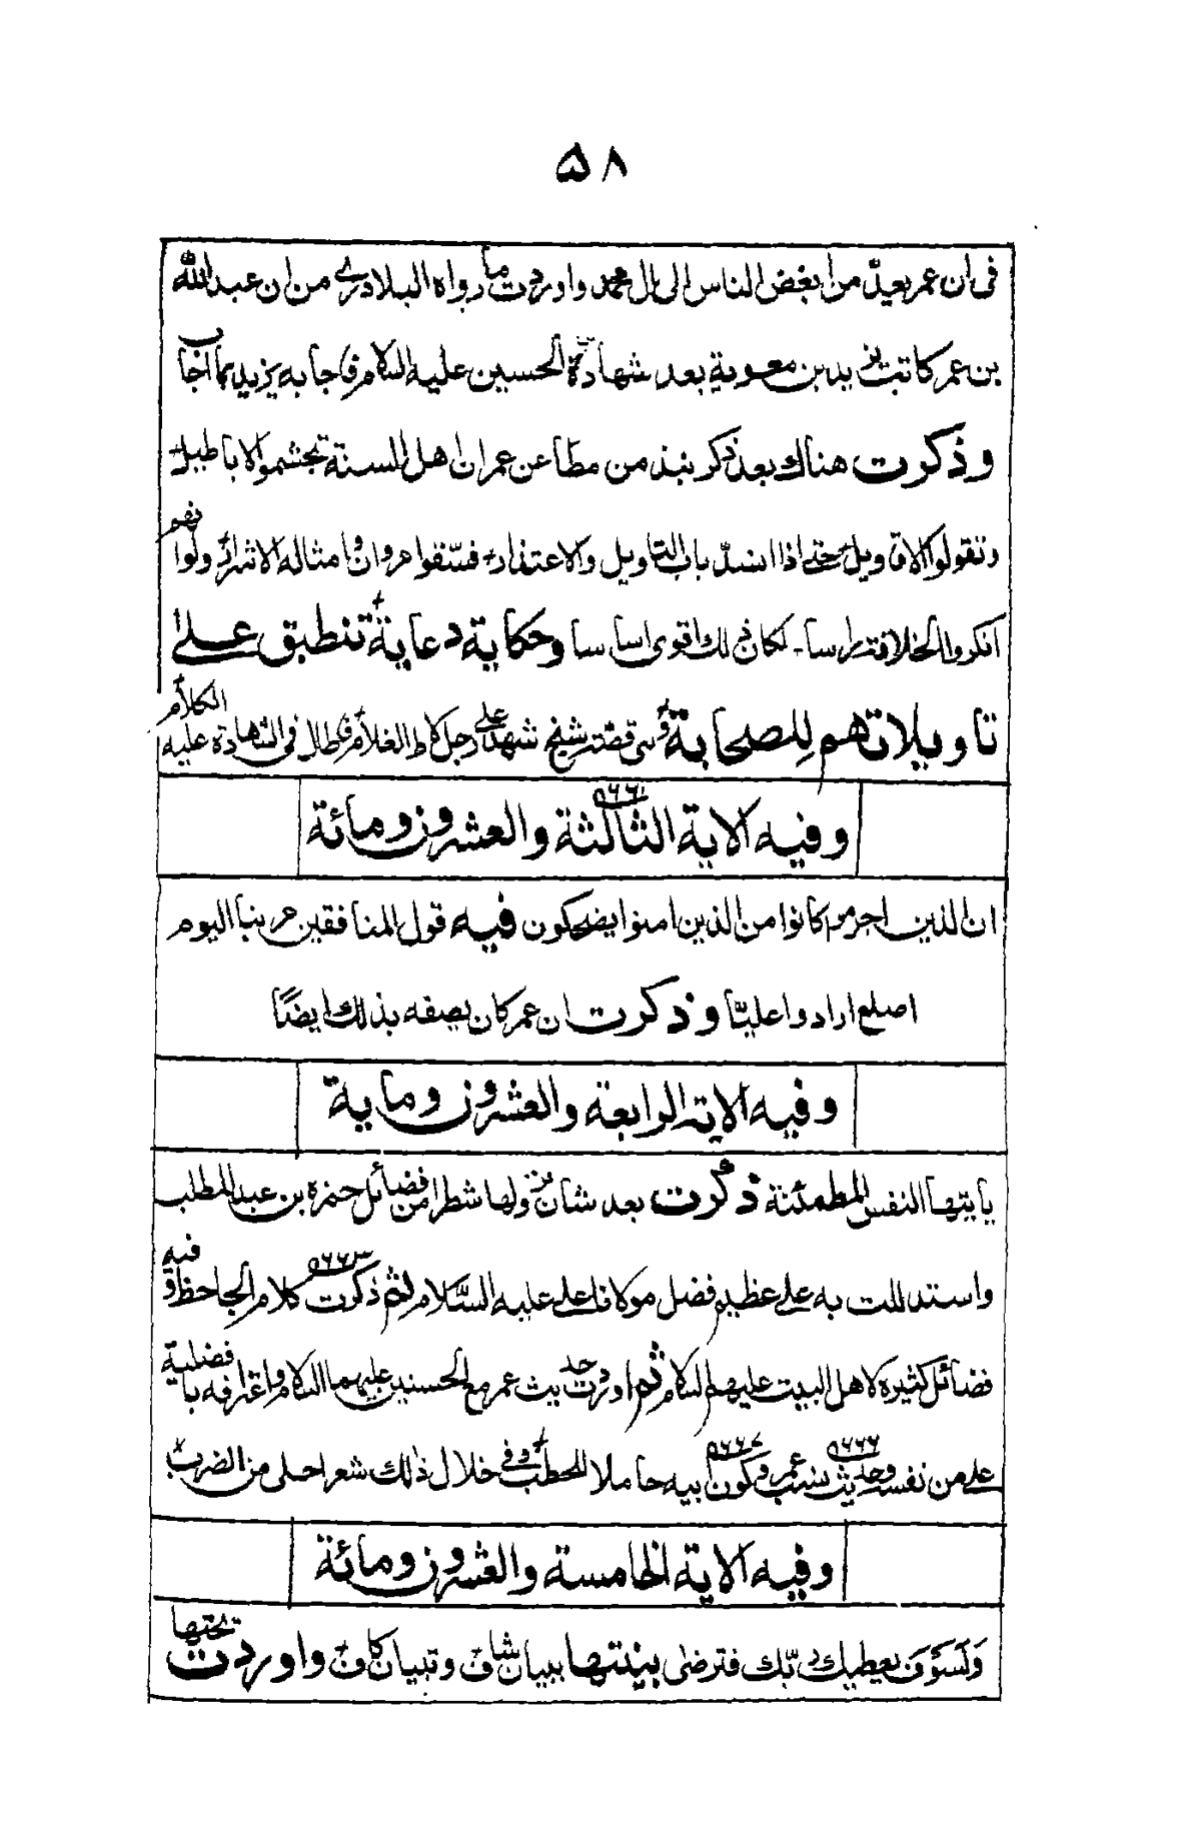 ۵۸
فی ان عمر یعدّ من ابغض الناس الی ال محمد واوردت ما رواه البلاذری من ان عبدالله
بن عمر کاتب یزید بن معویة بعد شهادة الحسین علیه السلام فاجابه یزید بما اجاب
وذکرت هناک بعد ذکر نبذ من مطاعن عمر ان اهل السنة تجشموا لاباطیل
وتقولوا الاقاویل حتی اذا انسدّ باب التاویل والاعتذار فسّقوا مروان وامثاله الاشرار ولو انهم
انکروا الخلافة راسا لکان ذلک اقوی اساسا وحکایة دعابة تنطبق علی
تاویلاتهم للصحابة وهی قصّة شیخ شهد علی رجل لاط الغلام فطال فی الشهادة علیه الکلام
وفیه الایة الثالثة والعشرون ومائة ۵۶۶۱
ان الذین اجرموا کانوا من الذین امنوا یضحکون فیه قول المنافقین مر بنا الیوم
اصلع ارادوا علیّا وذکرت ان عمر کان یصفه بذلک ایضًا
وفیه الایة الرابعة والعشرون ومایة
یایتها النفس المطمئنة ذکرت بعد شان نزولها شطرا من فضائل حمزه بن عبدالمطلب
واستدللت به علی عظیم فضل مولانا علی علیه السّلام ثم ذکرت ۵۶۶۳ کلام الجاحظ وفیه
فضائل کثیرة لاهل البیت علیهم السلام ثم اوردت حدیث عمر مع الحسنین علیهما السلام واعترافه بافضلیة
علی من نفسه وحدیث ۵۶۶۶ نسب عمر وکون ۵۶۶۷ ابیه حاملا للحطب وفی خلال ذلک شعر احلی من الضرب
وفیه الایة الخامسة والعشرون ومائة
وَلَسَوْفَ یعطیک ربّک فترضی بینتها ببیان شاف وتبیان کاف واوردت تحتها